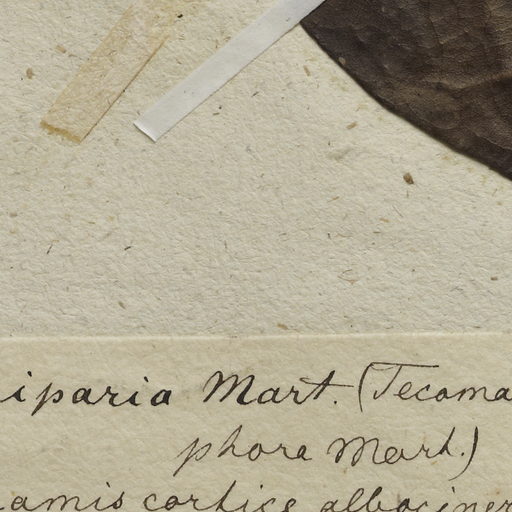 iparia Mart. (Tecoma
phora Mart.)
amis cortice albociner